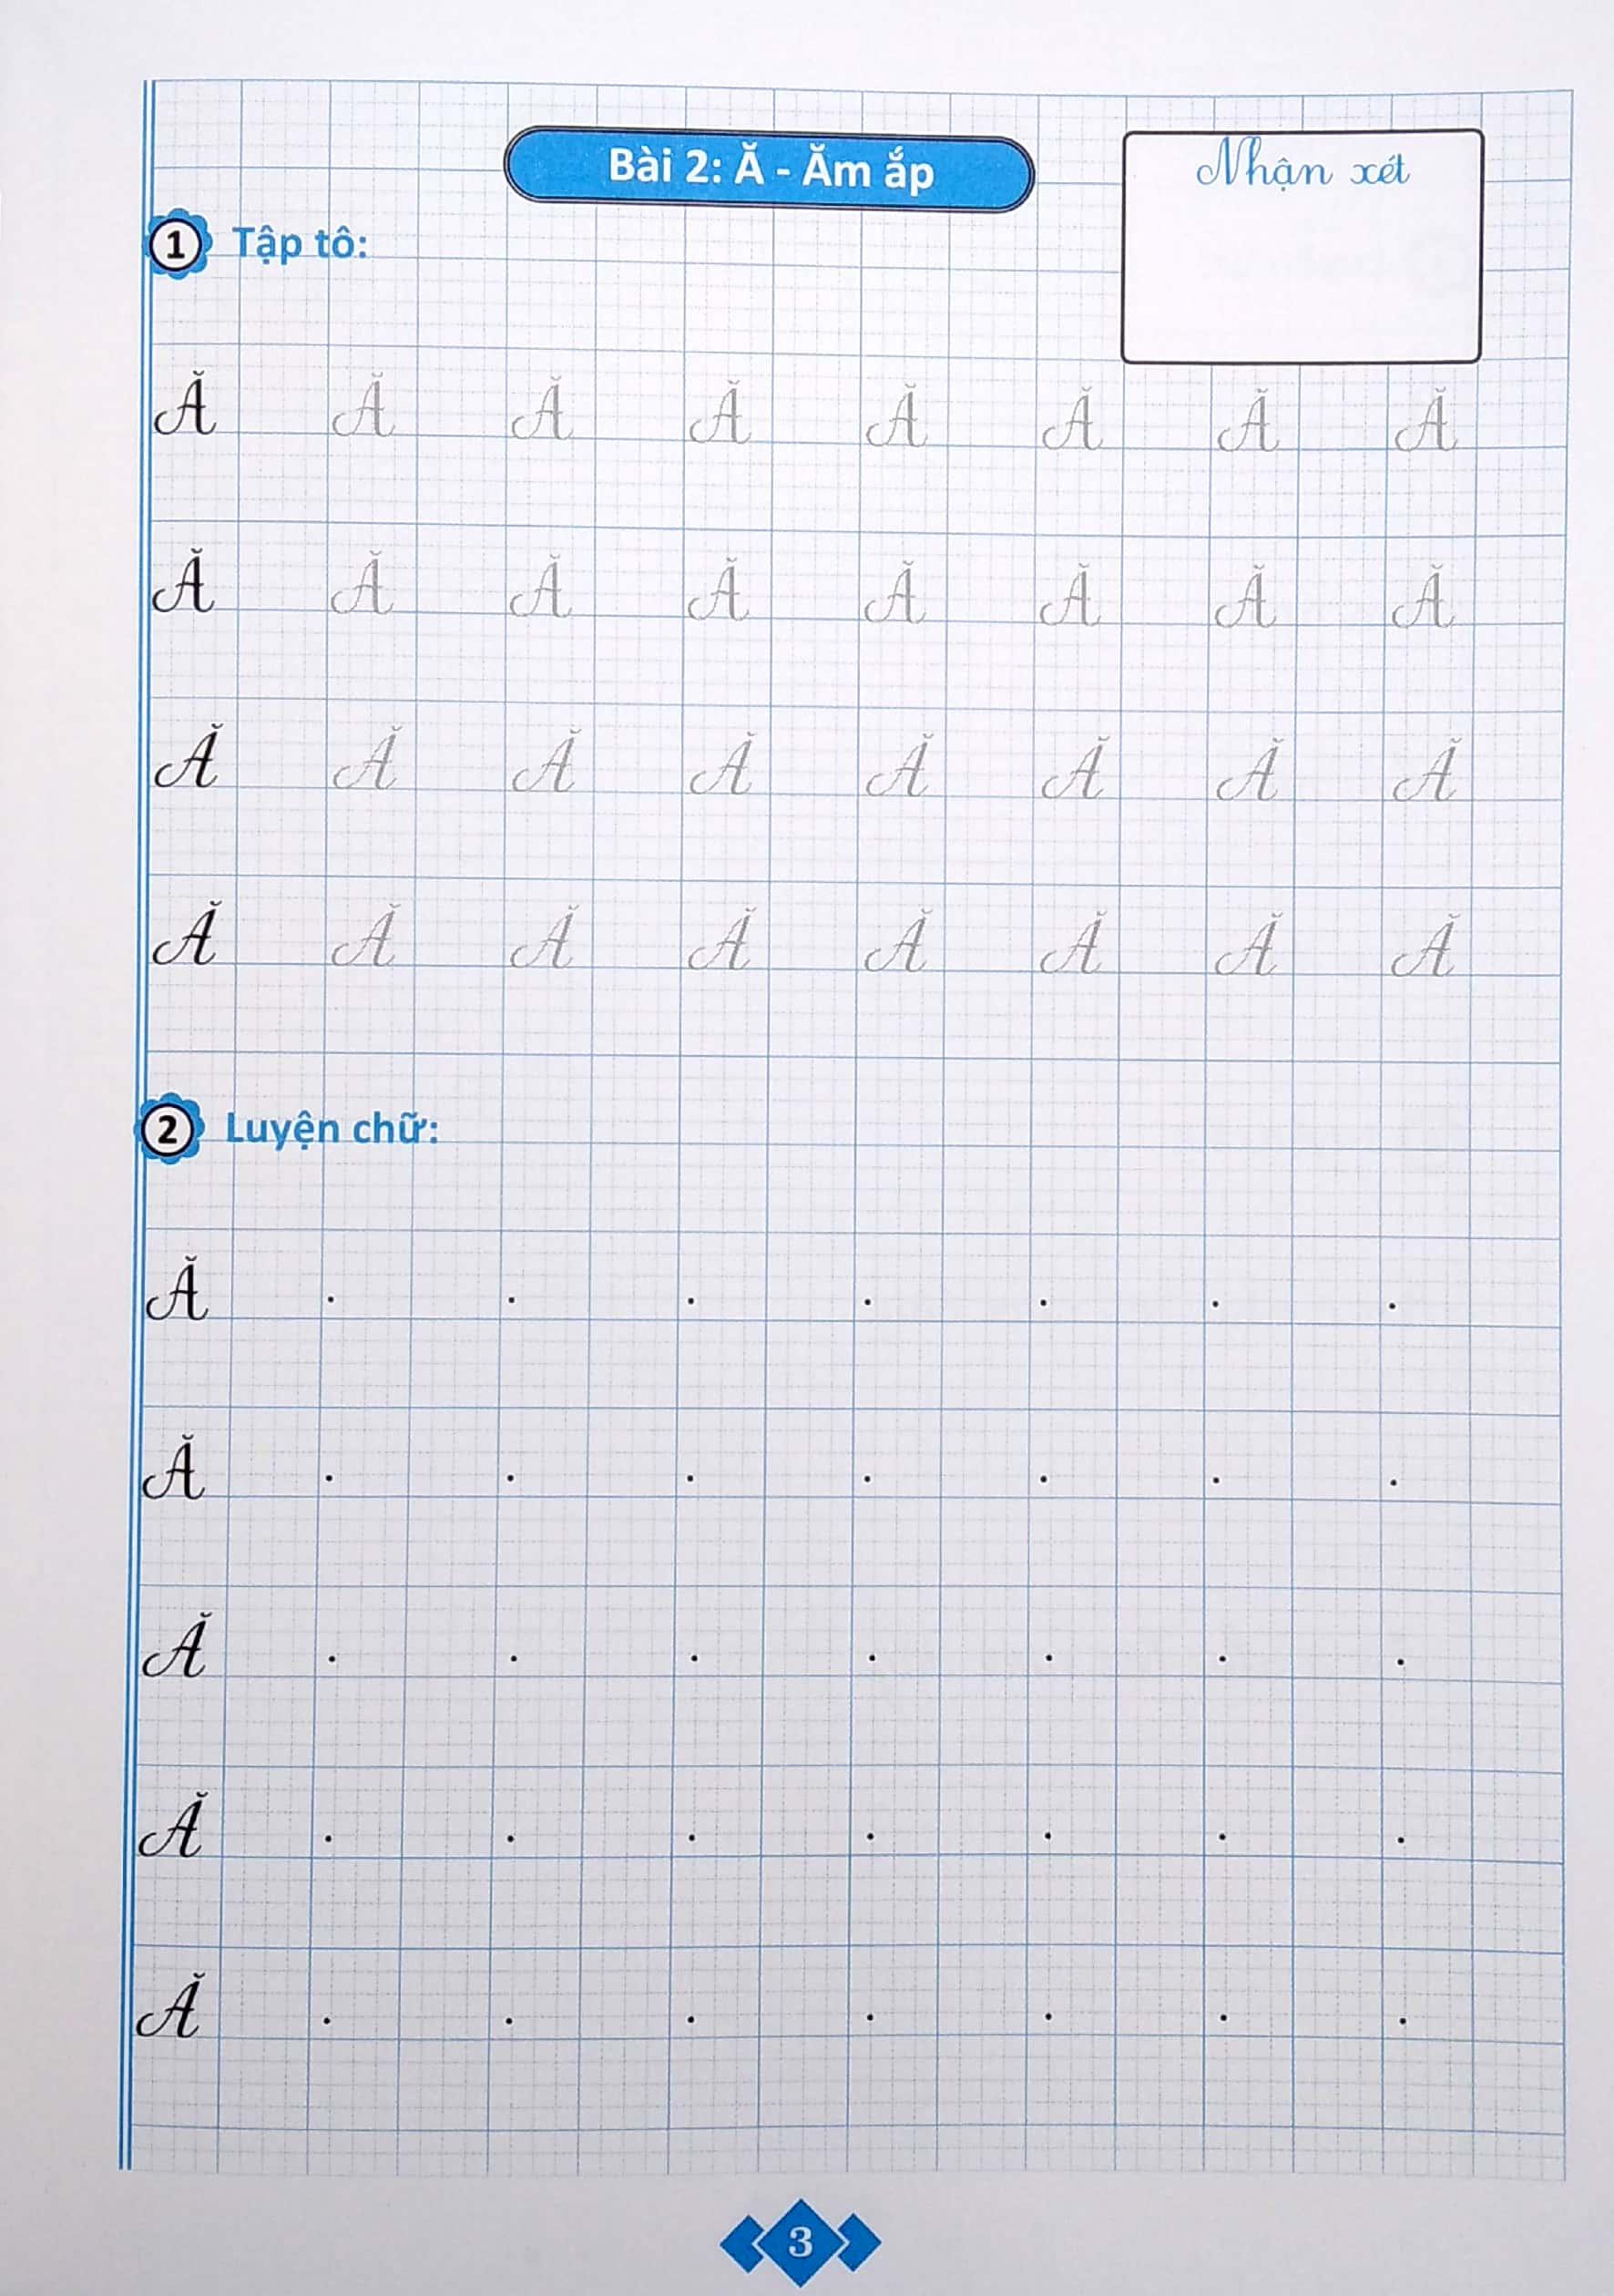 Bài 2: Ă - Ăm ắp
Nhận xét
1 Tập tô:
Ă Ă Ă Ă Ă Ă Ă Ă
Ă Ă Ă Ă Ă Ă Ă Ă
Ă Ă Ă Ă Ă Ă Ă Ă
Ă Ă Ă Ă Ă Ă Ă Ă
2 Luyện chữ:
Ă . . . . . . .
Ă . . . . . . .
Ă . . . . . . .
Ă . . . . . . .
Ă . . . . . . .
3